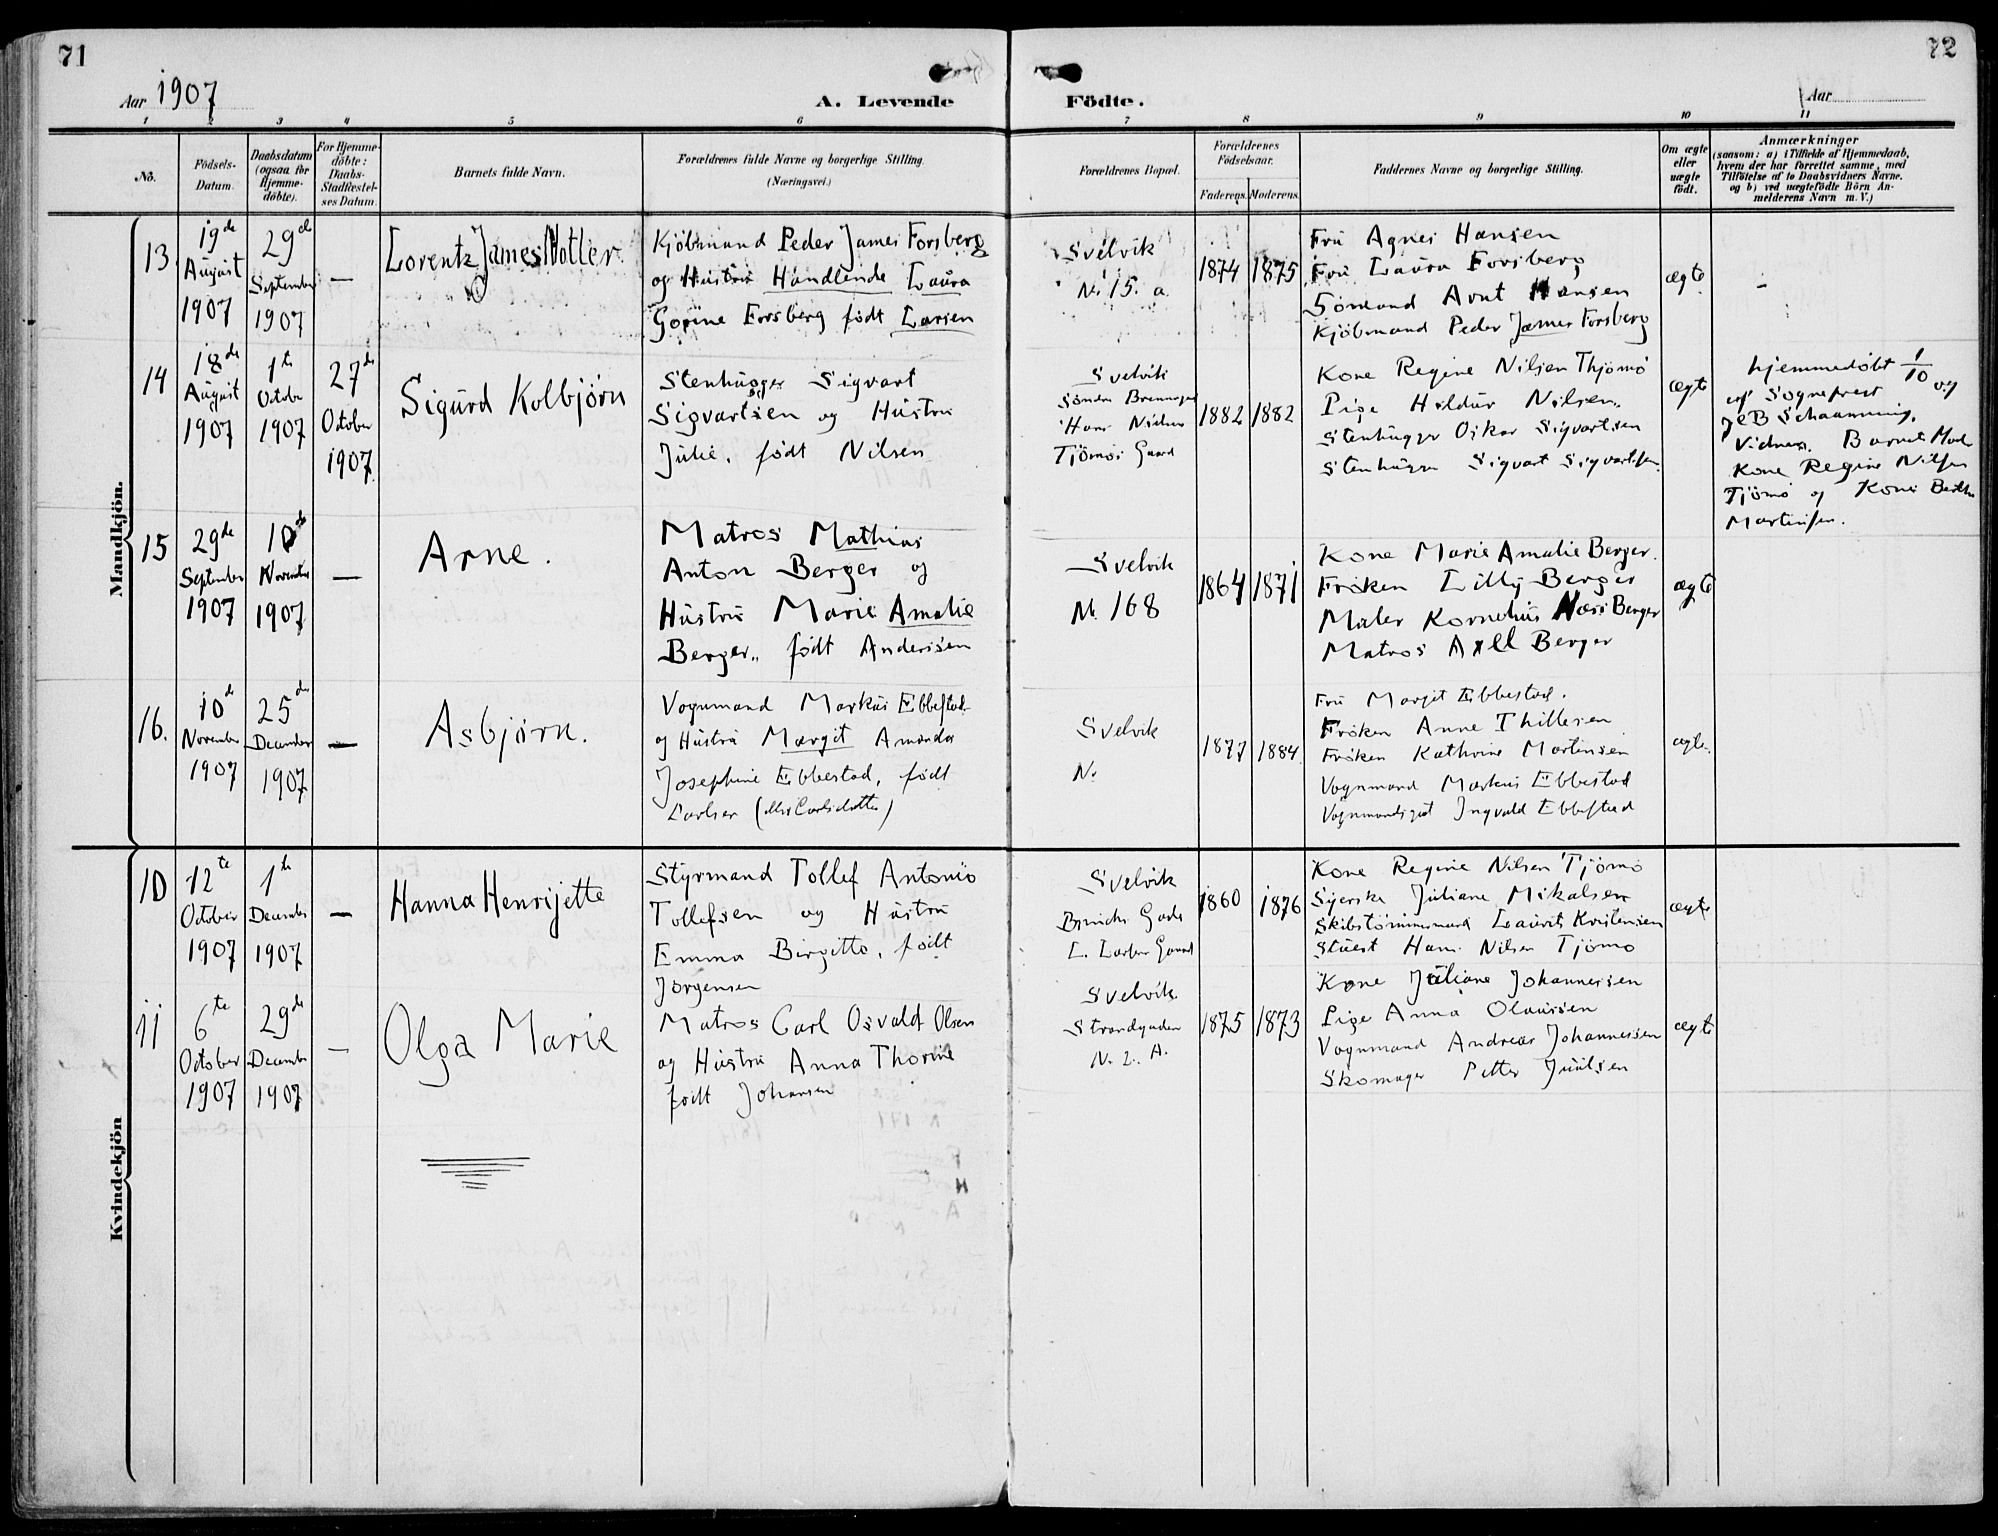 71
72
Aar 1907
A. Levende Födte.
Aar
1 2 3 4 5 6 7 8 9 10 11
No.
Födsels-
Datum.
Daabsdatum
(ogsaa for
Hjemme-
döbte).
For Hjemme-
döbte:
Daabs-
Stadfæstel-
ses Datum.
Barnets fulde Navn.
Forældrenes fulde Navne og borgerlige Stilling.
(Næringsvei.)
Forældrenes Bopæl.
Forældrenes
Födselsaar.
Faderens. Moderens.
Faddernes Navne og borgerlige Stilling.
Om ægte
eller
uægte
födt.
Anmærkninger
(saasom: a) i Tilfælde af Hjemmedaab,
hvem der har forrettet samme, med
Tilföielse af to Daabsvidners Navne.
og b) ved uægtefödte Börn An-
melderens Navn m. V.)
Mandkjön.
13.
19de
August
1907
29de
September
1907
—
Lorentz James
Kjöbmand Peder James Forsberg
og Hustru Handlende Laura
Forsberg født Larsen
Svelvik
No 15. a.
1874
1875
Fru Agnes Hansen
Fru Laura Forsberg
Sömand Arnt Hansen
Kjöbmand Peder James Forsberg
ægte
–
14
18de
August
1907
1te
October
1907
27de
October
1907.
Sigurd Kolbjørn
Stenhugger Sigvart
Sigvartsen og Hustru
Julie, født Nilsen
Svelvik
Søndre
Hans Nilsen
Tjömös Gaard
1882
1882
Kone Regine Nilsen Thjömö
Pige Hildur Nilsen.
Stenhugger Oskar Sigvartsen
Stenhugger Sigvart Sigvartsen.
ægte
hjemmedøbt 1/10 07
af Sogneprest
Schaanning.
Vidner. Barnets
Kone Regine Nilsen
Tjömö og Kone
Martinsen.
15
29de
September
1907
10de
November
1907
—
Arne.
Matros Mathias
Anton Berger og
Hustru Marie Amalie
Berger, født Andersen
Svelvik
No 168
1864
1871
Kone Marie Amalie Berger.
Frøken Lilly Berger
Maler Kornelius Berger
Matros Axel Berger
ægte
16.
10de
November
1907
25de
December
1907
—
Asbjørn.
Vognmand Markus Ebbestad
og Hustru Margit Amanda
Josephine Ebbestad, født
Carlsen (eller Carlsdatter)
Svelvik
No
1877
1884
Fru Margit Ebbestad.
Frøken Anne Thillesen
Frøken Kathrine Martinsen
Vognmand Markus Ebbestad
Vognmandsgut Ingvald Ebbestad
ægte.
Kvindekjön
10
12te
October
1907
1te
December
1907
—
Hanna Henrijette
Styrmand Tollef Antonio
Tollefsen og Hustru
Emma Birgitte, født
Jørgensen
Svelvik
Gade
L. Larsens Gaard
1860
1876
Kone Regine Nilsen Tjömö
Syerske Juliane Mikalsen
Skibstømmermand Laurits Kristensen
Stuert Hans Nilsen Tjömö
ægte
11
6te
October
1907
29de
December
1907
—
Olga Marie
Matros Carl Osvald Olsen
og Hustru Anna Thorine
født Johansen
Svelvik.
Strandgaden
No 2. A.
1875
1873
Kone Juliane Johannessen
Pige Anna Olaussen
Vognmand Andreas Johannessen
Skomager Petter Juulsen
ægte